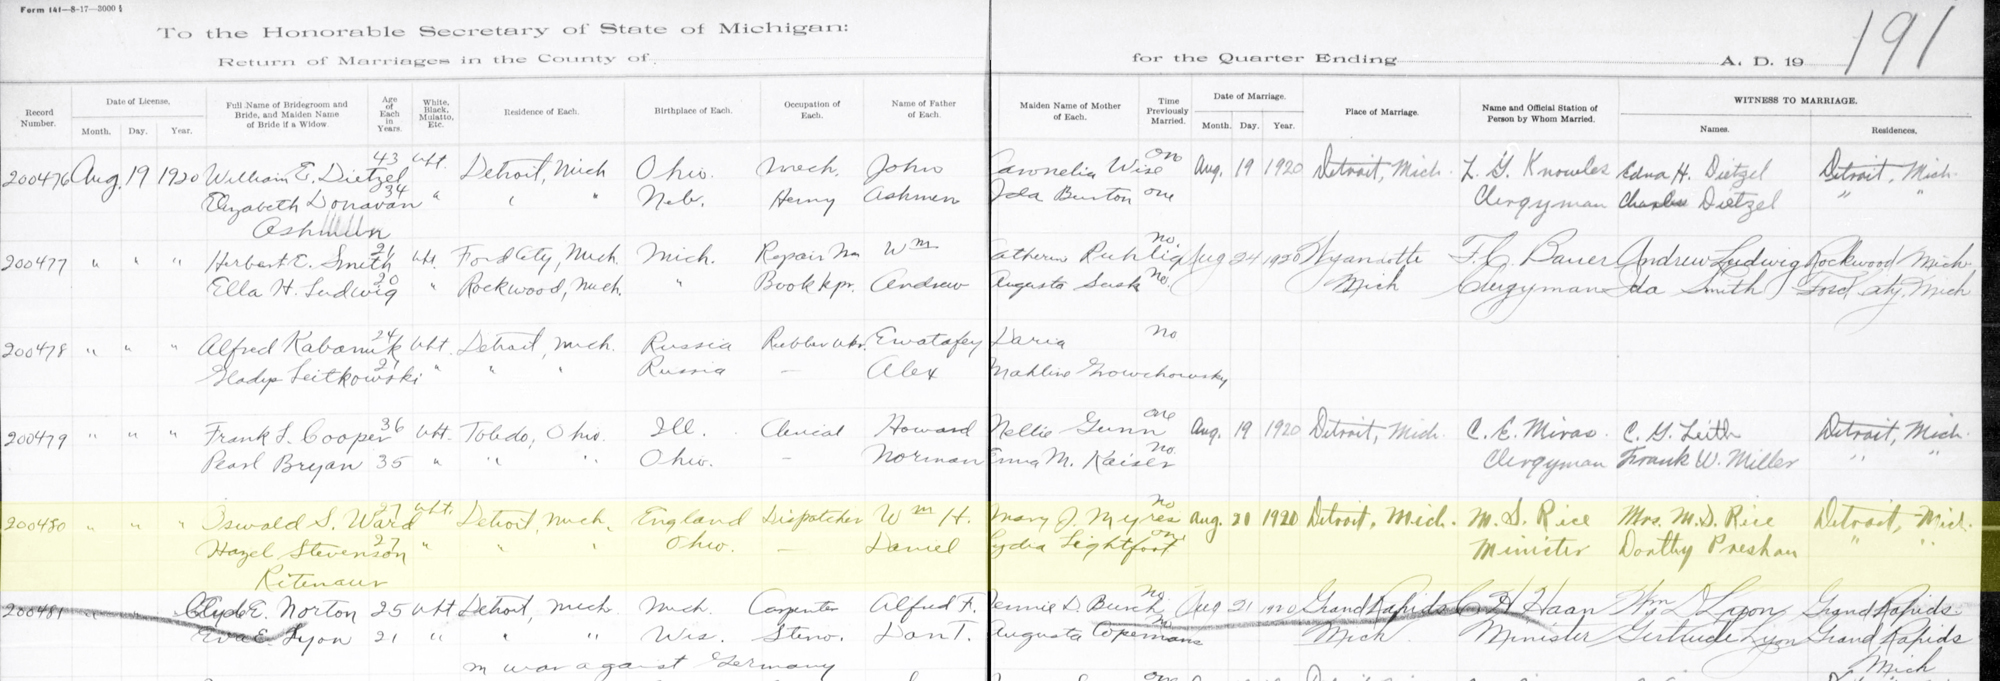 Form 141—8-17—3000
191
To the Honorable Secretary of State of Michigan:
Return of Marriages in the County of
for the Quarter Ending A. D. 19
Record Number. Date of License, Month. Day. Year. Full Name of Bridegroom and Bride, and Maiden Name of Bride if a Widow. Age of Each in Years. White, Black, Mulatto, Etc. Residence of Each. Birthplace of Each. Occupation of Each. Name of Father of Each. Maiden Name of Mother of Each. Time Previously Married. Date of Marriage. Month. Day. Year. Place of Marriage. Name and Official Station of Person by Whom Married. WITNESS TO MARRIAGE. Names. Residences.
200476 Aug. 19 1920 William E. Dietzel 43 Wht. Detroit, Mich Ohio. Mech. John Wise Aug. 19 1920 Detroit, Mich. L. G. Knowles Edna H. Dietzel Detroit, Mich.
Elizabeth Donavan 34 " " " Neb. Henry Ashmun Ida Burton one Clergyman Charles Dietzel " "
Ashmun
200477 " " " Herbert E. Smith 21 Wht. Ford City, Mich. Mich. Repair Mn Wm no. Aug 24 1920 Wyandotte F. C. Bauer Andrew Ludwig Rockwood Mich.
Ella H. Ludwig 20 " Rockwood, Mich. " Book kpr. Andrew Augusta no. Mich Clergyman Ida Smith Ford City, Mich
200478 " " " Alfred 24 Wht. Detroit, Mich. Russia Rubber wkr. Daria no
Gladys Leitkowski 21 " " " Russia — Alex
200479 " " " Frank L. Cooper 36 Wht. Toledo, Ohio. Ill. Clerical Howard Nellie Gunn one Aug. 19 1920 Detroit, Mich. C. E. C. G. Leith Detroit, Mich.
Pearl Bryan 35 " " " Ohio. — Norman Emma M. Kaiser no. Clergyman Frank W. Miller " "
200480 " " " Oswald S. Ward 27 Wht. Detroit, Mich. England Dispatcher Wm H. Mary J. Myres no Aug. 20 1920 Detroit, Mich. M. S. Rice Mrs. M. S. Rice Detroit, Mich.
Hazel Stevenson 27 " " " Ohio. — Daniel Lydia Lightfoot Minister Dorthy " "
Ritenaur
200481 " " " Clyde E. Norton 25 Wht Detroit, Mich. Mich. Carpenter Alfred F. Jennie D. Burch no Aug 21 1920 Grand Rapids C H Haan Wm D Lyon Grand Rapids
Eva E. Lyon 21 " " " Wis. Steno. Dan T. Augusta Mich Minister Gertrude Lyon Grand Rapids
m war against Germany Mich